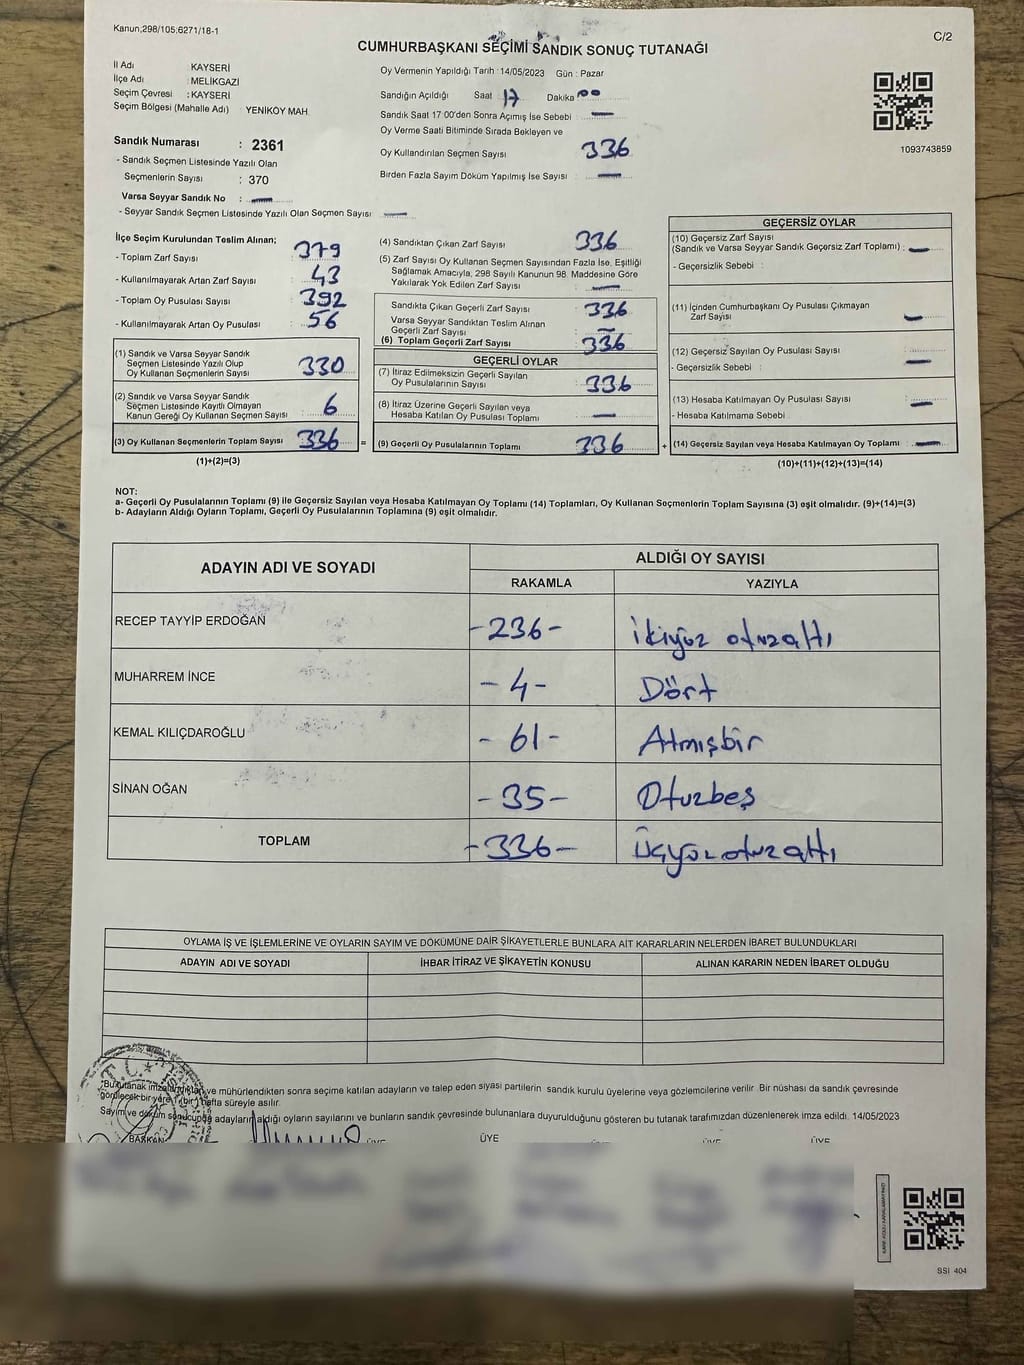 Kanun,298/105,6271/18-1
C/2
CUMHURBAŞKANI SEÇİMİ SANDIK SONUÇ TUTANAĞI
İl Adı : KAYSERİ
İlçe Adı : MELİKGAZİ
Seçim Çevresi : KAYSERİ
Seçim Bölgesi (Mahalle Adı) YENİKÖY MAH.
Oy Vermenin Yapıldığı Tarih : 14/05/2023 Gün : Pazar
Sandığın Açıldığı Saat 17 Dakika 00
Sandık Saat 17 00'den Sonra Açımış İse Sebebi : —
Oy Verme Saati Bitiminde Sırada Bekleyen ve
Oy Kullandırılan Seçmen Sayısı 336
Birden Fazla Sayım Döküm Yapılmış İse Sayısı : —
1093743859
Sandık Numarası : 2361
- Sandık Seçmen Listesinde Yazılı Olan
Seçmenlerin Sayısı : 370
Varsa Seyyar Sandık No : —
- Seyyar Sandık Seçmen Listesinde Yazılı Olan Seçmen Sayısı: —
İlçe Seçim Kurulundan Teslim Alınan;
- Toplam Zarf Sayısı : 379
- Kullanılmayarak Artan Zarf Sayısı : 43
- Toplam Oy Pusulası Sayısı : 392
- Kullanılmayarak Artan Oy Pusulası : 56
(1) Sandık ve Varsa Seyyar Sandık
Seçmen Listesinde Yazılı Olup
Oy Kullanan Seçmenlerin Sayısı 330
(2) Sandık ve Varsa Seyyar Sandık
Seçmen Listesinde Kayıtlı Olmayan
Kanun Gereği Oy Kullanan Seçmen Sayısı 6
(3) Oy Kullanan Seçmenlerin Toplam Sayısı 336 =
(1)+(2)=(3)
(4) Sandıktan Çıkan Zarf Sayısı 336
(5) Zarf Sayısı Oy Kullanan Seçmen Sayısından Fazla İse, Eşitliği
Sağlamak Amacıyla, 298 Sayılı Kanunun 98. Maddesine Göre
Yakılarak Yok Edilen Zarf Sayısı : —
Sandıkta Çıkan Geçerli Zarf Sayısı : 336
Varsa Seyyar Sandıktan Teslim Alınan
Geçerli Zarf Sayısı : —
(6) Toplam Geçerli Zarf Sayısı : 336
GEÇERLİ OYLAR
(7) İtiraz Edilmeksizin Geçerli Sayılan
Oy Pusulalarının Sayısı : 336
(8) İtiraz Üzerine Geçerli Sayılan veya
Hesaba Katılan Oy Pusulası Toplamı : —
(9) Geçerli Oy Pusulalarının Toplamı : 336 +
GEÇERSİZ OYLAR
(10) Geçersiz Zarf Sayısı
(Sandık ve Varsa Seyyar Sandık Geçersiz Zarf Toplamı) : —
- Geçersizlik Sebebi :
(11) İçinden Cumhurbaşkanı Oy Pusulası Çıkmayan
Zarf Sayısı : —
(12) Geçersiz Sayılan Oy Pusulası Sayısı : —
- Geçersizlik Sebebi :
(13) Hesaba Katılmayan Oy Pusulası Sayısı : —
- Hesaba Katılmama Sebebi :
(14) Geçersiz Sayılan veya Hesaba Katılmayan Oy Toplamı : —
(10)+(11)+(12)+(13)=(14)
NOT:
a- Geçerli Oy Pusulalarının Toplamı (9) ile Geçersiz Sayılan veya Hesaba Katılmayan Oy Toplamı (14) Toplamları, Oy Kullanan Seçmenlerin Toplam Sayısına (3) eşit olmalıdır. (9)+(14)=(3)
b- Adayların Aldığı Oyların Toplamı, Geçerli Oy Pusulalarının Toplamına (9) eşit olmalıdır.
ADAYIN ADI VE SOYADI
ALDIĞI OY SAYISI
RAKAMLA YAZIYLA
RECEP TAYYİP ERDOĞAN -236- İkiyüz otuzaltı
MUHARREM İNCE -4- Dört
KEMAL KILIÇDAROĞLU -61- Atmışbir
SİNAN OĞAN -35- Otuzbeş
TOPLAM -336- Üçyüzotuzaltı
OYLAMA İŞ VE İŞLEMLERİNE VE OYLARIN SAYIM VE DÖKÜMÜNE DAİR ŞİKAYETLERLE BUNLARA AİT KARARLARIN NELERDEN İBARET BULUNDUKLARI
ADAYIN ADI VE SOYADI İHBAR İTİRAZ VE ŞİKAYETİN KONUSU ALINAN KARARIN NEDEN İBARET OLDUĞU
"Bu tutanak imzalandıktan ve mühürlendikten sonra seçime katılan adayların ve talep eden siyasi partilerin sandık kurulu üyelerine veya gözlemcilerine verilir. Bir nüshası da sandık çevresinde
görülecek bir yere 1 (bir) hafta süreyle asılır.
Sayım ve döküm sonucunda adayların aldığı oyların sayılarını ve bunların sandık çevresinde bulunanlara duyurulduğunu gösteren bu tutanak tarafımızdan düzenlenerek imza edildi. 14/05/2023
BAŞKAN ÜYE ÜYE ÜYE ÜYE
SSİ 404